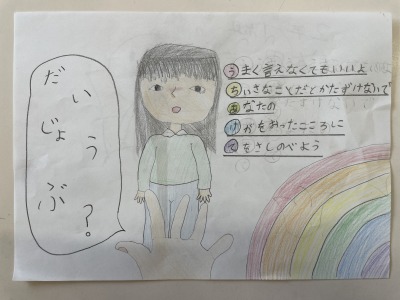 うまく言えなくてもいいよ
ちいさなことだとかたずけないで
あなたの
けがをおったこころに
てをさしのべよう
だいじょうぶ？